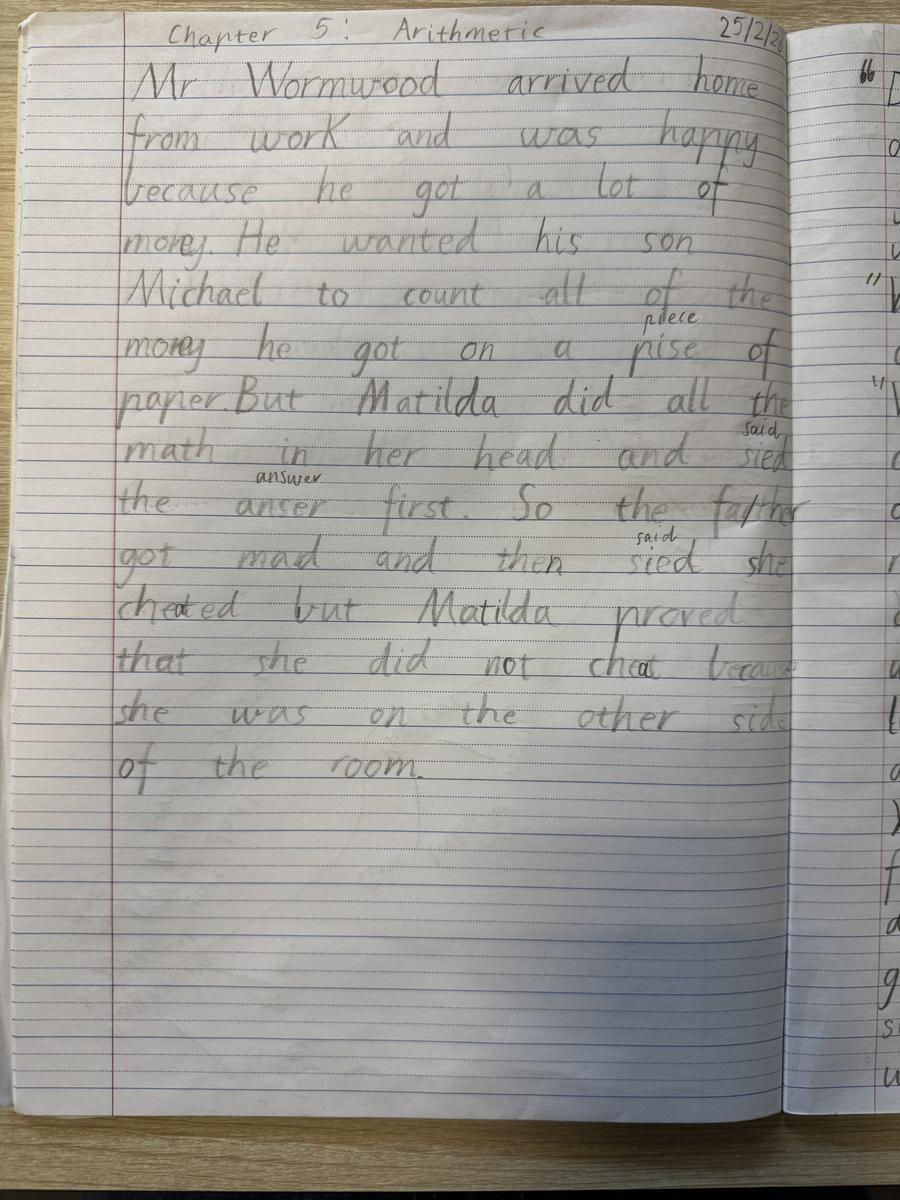 Chapter 5: Arithmetic 25/2/2
Mr Wormwood arrived home
from work and was happy
because he got a lot of
money. He wanted his son
Michael to count all of the
piece
money he got on a pise of
paper. But Matilda did all the
said
math in her head and sied
answer
the anser first. So the fa/ther
said
got mad and then sied she
cheated but Matilda proved
that she did not cheat because
she was on the other side
of the room.